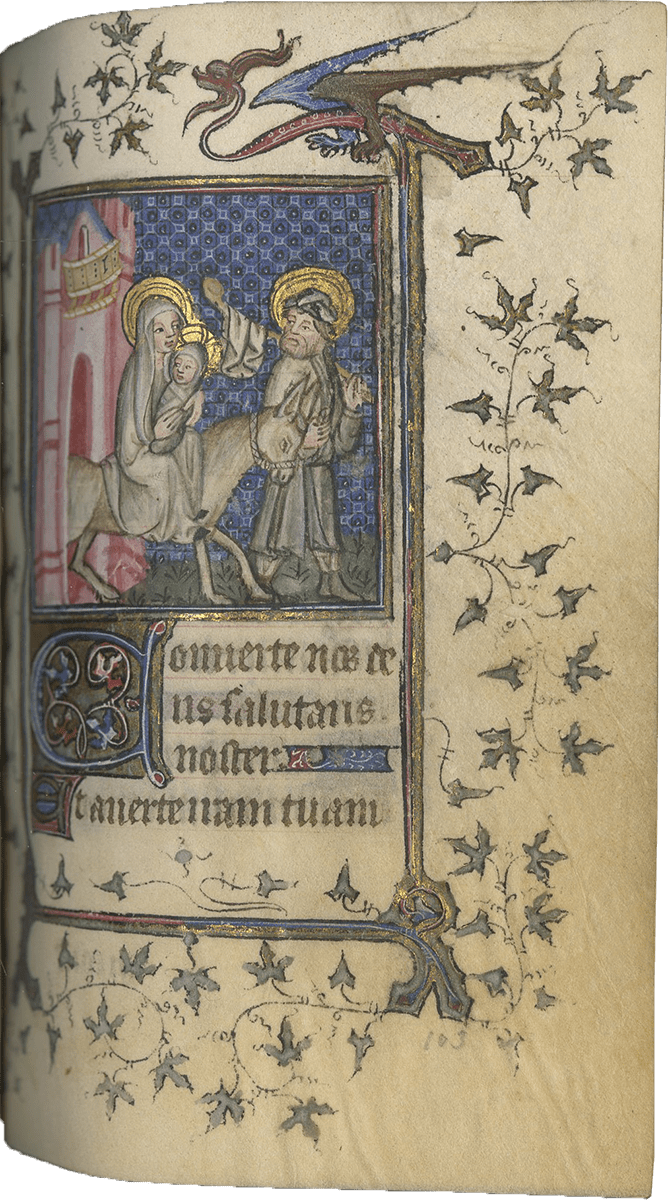 Conuerte nos de
us salutaris
noster.
Et auerte iram tuam
103